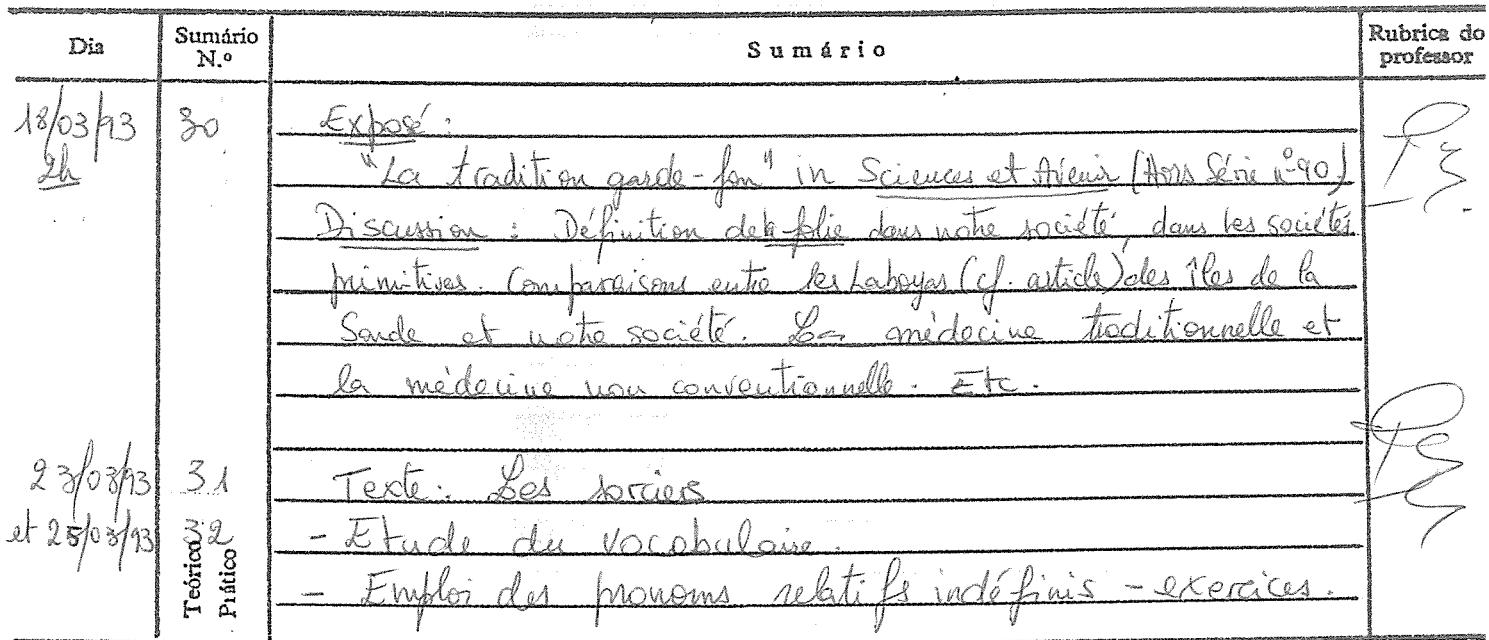 Dia Sumário N.º Sumário Rubrica do professor
18/03/93 30 Exposé :
2h "La tradition garde-fou" in Sciences et Avenir (Hors Série nº90)
Discussion : Définition de la folie dans notre société, dans les sociétés
primitives. Comparaisons entre les Laboyas (cf. article) des îles de la
Sonde et notre société. La médecine traditionnelle et
la médecine non conventionnelle. Etc.
23/03/93 31 Texte : Les sorciers
et 25/03/93 32 - Etude du vocabulaire.
Teórico Prático - Emploi des pronoms relatifs indéfinis - exercices.